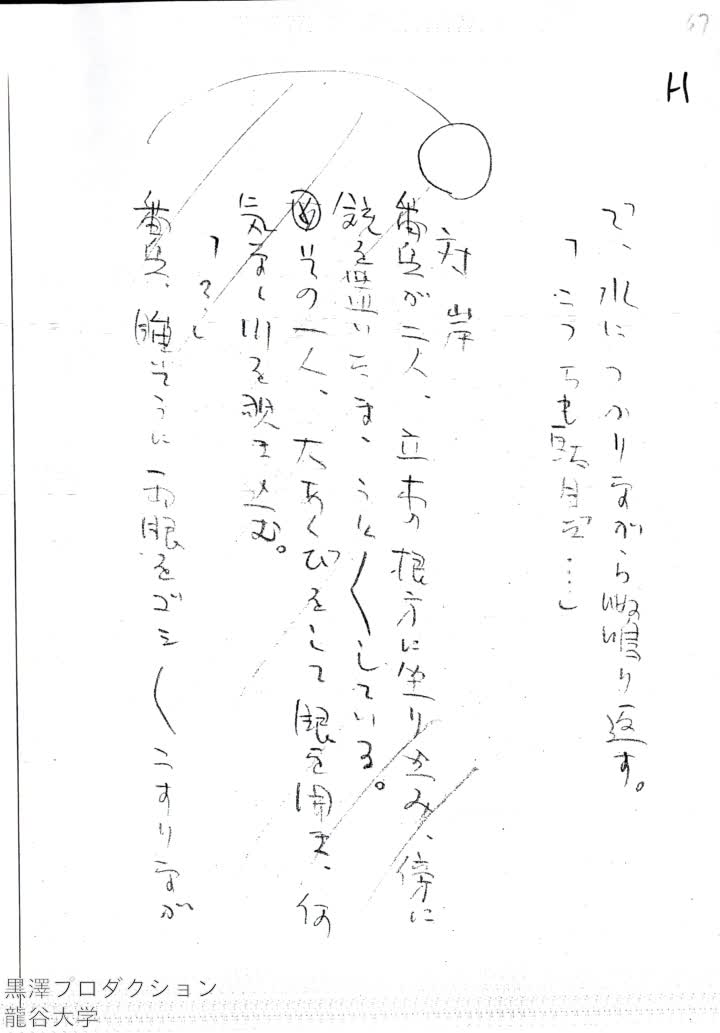 67
H
で、水につかりながら呶鳴り返す。
「こつちも駄目だ…」
対岸
番兵が二人、立木の根方に坐り込み、傍に
銃を置いたまゝうと〱している。
その一人、大あくびをして眼を開き、何
気なく川を覗き込む。
「？」
番兵、睡そうに両眼をゴシ〱こすりなが
黒澤プロダクション
龍谷大学